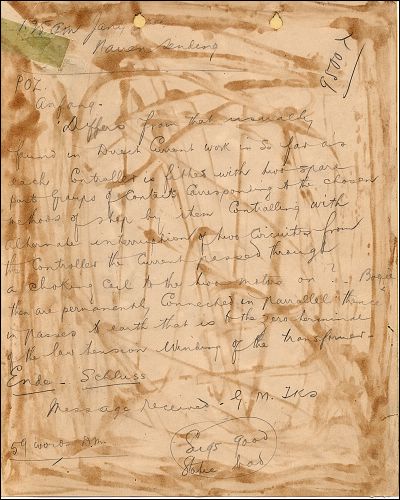 1.35 am Jany
Nauen sending
95001
POZ.
Anfang.
Differs from that usually
found in Direct Current work in so far as
each Controller is fitted with two spare
part groups of Contacts Corresponding to the chosen
methods of stop by then Controlling with
Alternate interruption of two Circuits from
the Controller the Current passed through
a choking Coil to the two motors on ? - Bogie
then are permanently Connected in parrallel thence
in passes to earth that is to the zero terminal
of the low tension Winding of the transformer.
Ende - Schluss
Message received - G. M. IKS
59 words Am.
Sigs good
Static bad